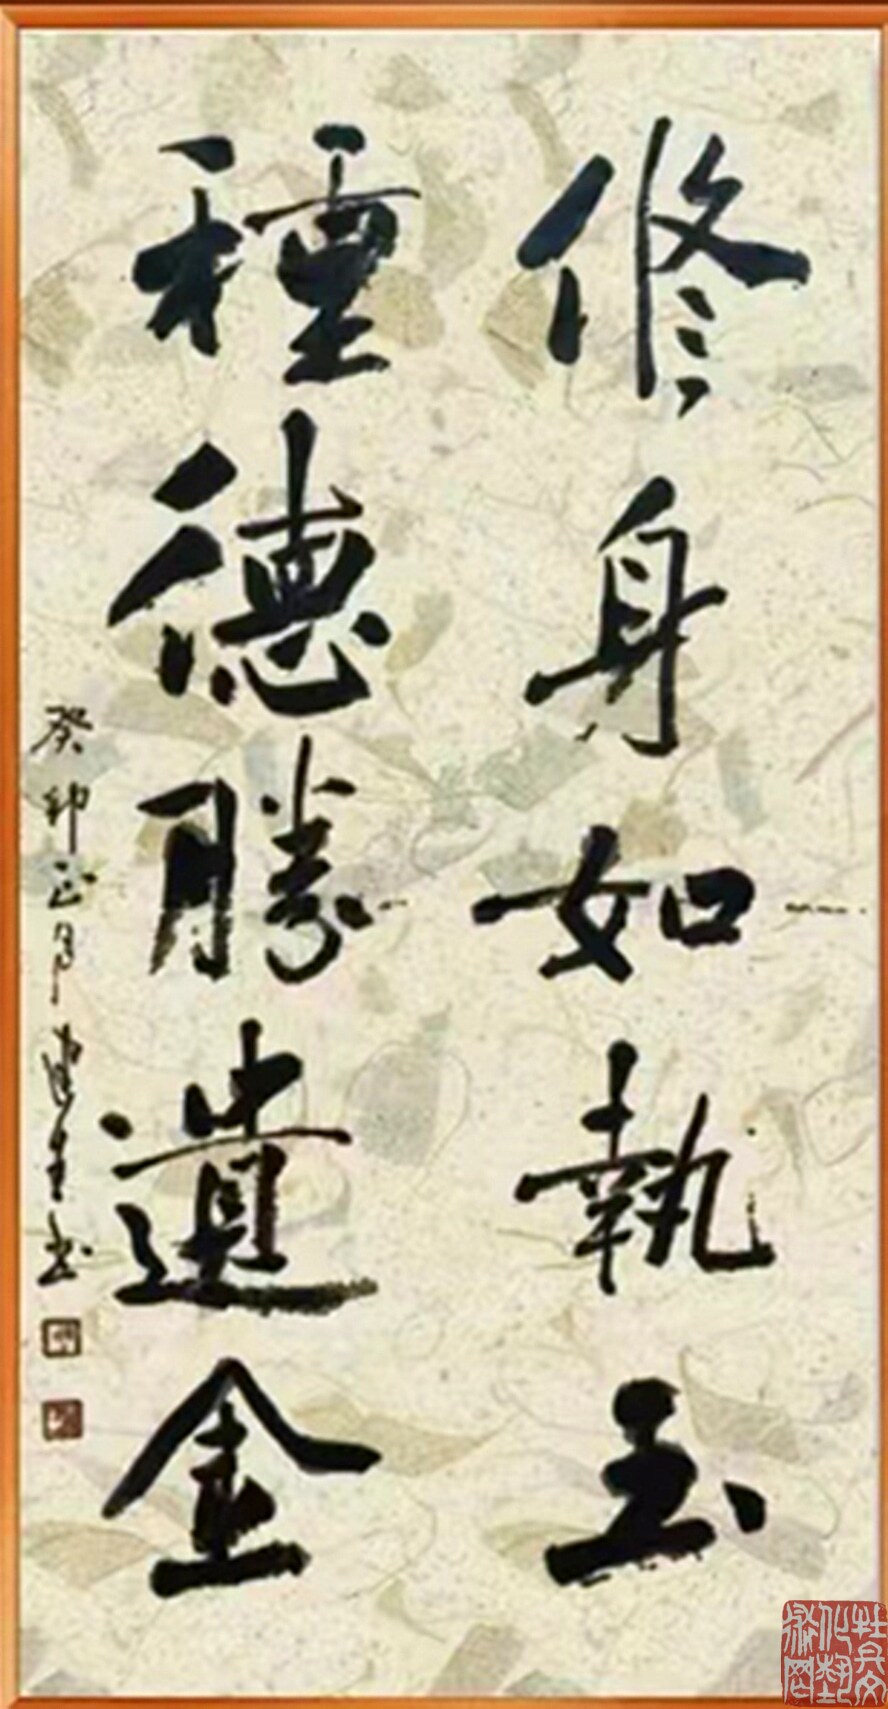 修身如執玉
種德勝遺金
癸卯正月建書